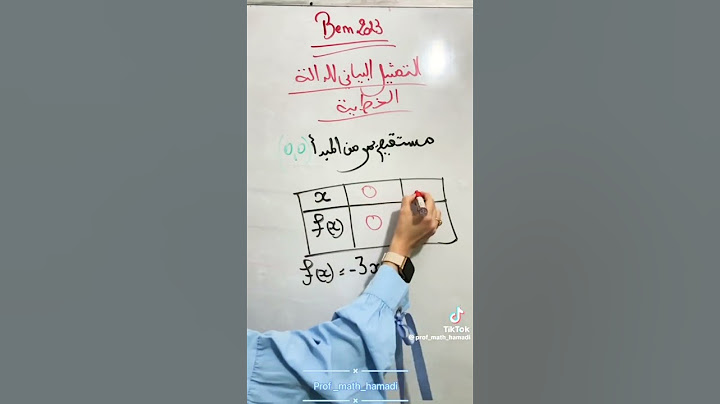 Bem 2023
التمثيل البياني للدالة
الخطية
مستقيم يمر من المبدأ (0,0)
x 0
f(x) 0
f(x) = -3x
TikTok
@prof_math_hamadi
Prof_math_hamadi